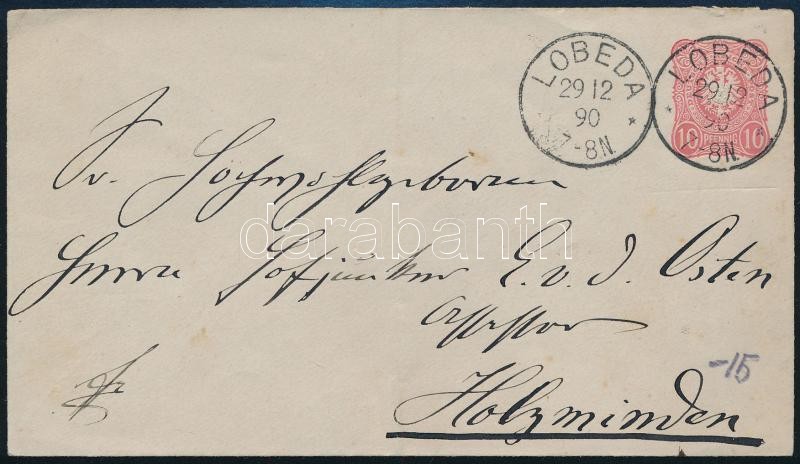 LOBEDA
29 12
90
7-8N.
*
LOBEDA
29 12
90
7-8N.
*
10 PFENNIG 10
Sr. Hochwohlgeboren
darabanth
Herrn Hofjunker E. v. d. Osten
Assessor
-15
Holzminden